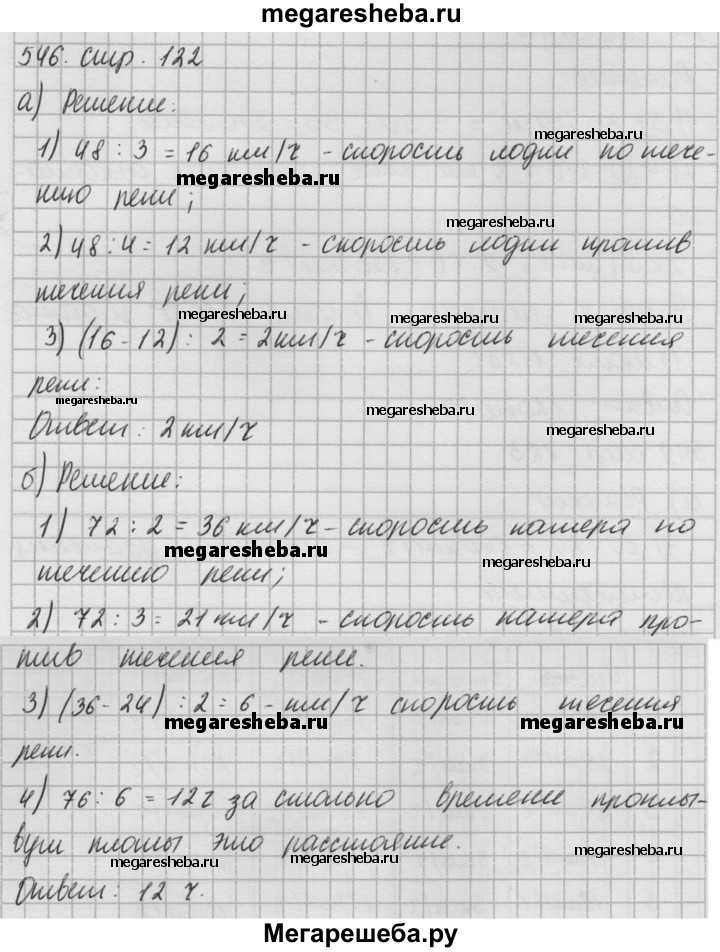 megaresheba.ru
546. стр. 122
а) Решение:
megaresheba.ru
1) 48 : 3 = 16 км/ч - скорость лодки по тече-
megaresheba.ru
нию реки;
megaresheba.ru
2) 48 : 4 = 12 км/ч - скорость лодки против
течения реки;
megaresheba.ru megaresheba.ru megaresheba.ru
3) (16 - 12) : 2 = 2 км/ч - скорость течения
реки:
megaresheba.ru megaresheba.ru
Ответ: 2 км/ч
megaresheba.ru
б) Решение:
1) 72 : 2 = 36 км/ч - скорость катера по
megaresheba.ru megaresheba.ru
течению реки;
2) 72 : 3 = 21 км/ч - скорость катера про-
тив течения реки.
3) (36 - 24) : 2 = 6 - км/ч скорость течения
megaresheba.ru megaresheba.ru
реки.
4) 76 : 6 = 12 ч за столько времени проплы-
вут плоты это расстояние.
megaresheba.ru megaresheba.ru megaresheba.ru
Ответ: 12 ч.
Мегарешеба.ру